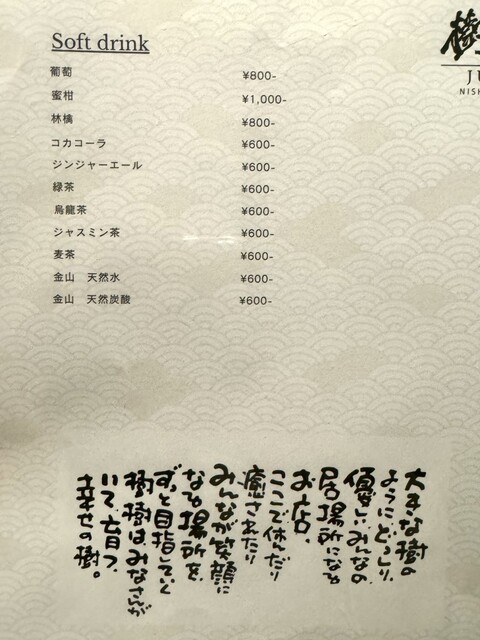 Soft drink
葡萄 ¥800-
蜜柑 ¥1,000-
林檎 ¥800-
コカコーラ ¥600-
ジンジャーエール ¥600-
緑茶 ¥600-
烏龍茶 ¥600-
ジャスミン茶 ¥600-
麦茶 ¥600-
金山 天然水 ¥600-
金山 天然炭酸 ¥600-
樹
JU
NISH
大きな樹の
ようにどっしり、
優しい、みんなの
居場所になる
お店。
ここで休んだり
癒されたり
みんなが笑顔に
なる場所を、
ずっと目指していく
樹樹はみなさんが
いて、育つ、
幸せの樹。